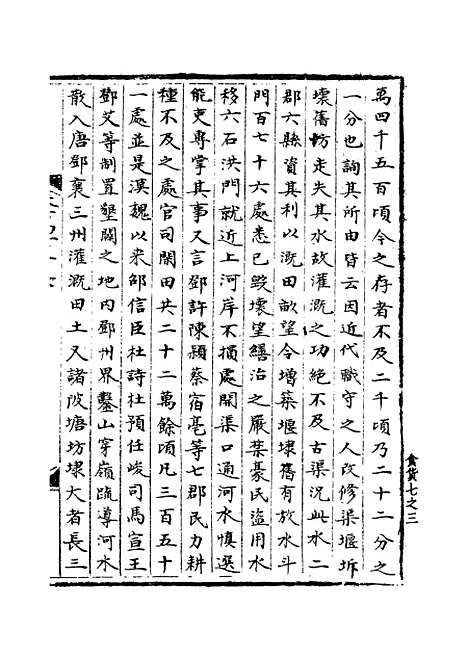 食貨七之三
萬四千五百頃今之存者不及二千頃乃二十二分之
一分也詢其所由皆云因近代職守之人改修渠堰拆
壞舊坊走失其水故灌溉之功絕不及古渠況此水二
郡六縣資其利以溉田畝望令增築堰埭舊有放水斗
門百七十六處悉已毀壞望繕治之嚴禁豪民盜用水
移六石洪門就近上河岸不損處開渠口通河水慎選
能吏專掌其事又言鄧許陳潁蔡宿亳等七郡民力耕
種不及之處官司閑田共二十二萬餘頃凡三百五十
一處並是漢魏以來邵信臣杜詩杜預任峻司馬宣王
鄧艾等制置墾闢之地內鄧州界鑿山穿嶺疏導河水
散入唐鄧襄三州灌溉田土又諸陂塘坊埭大者長三